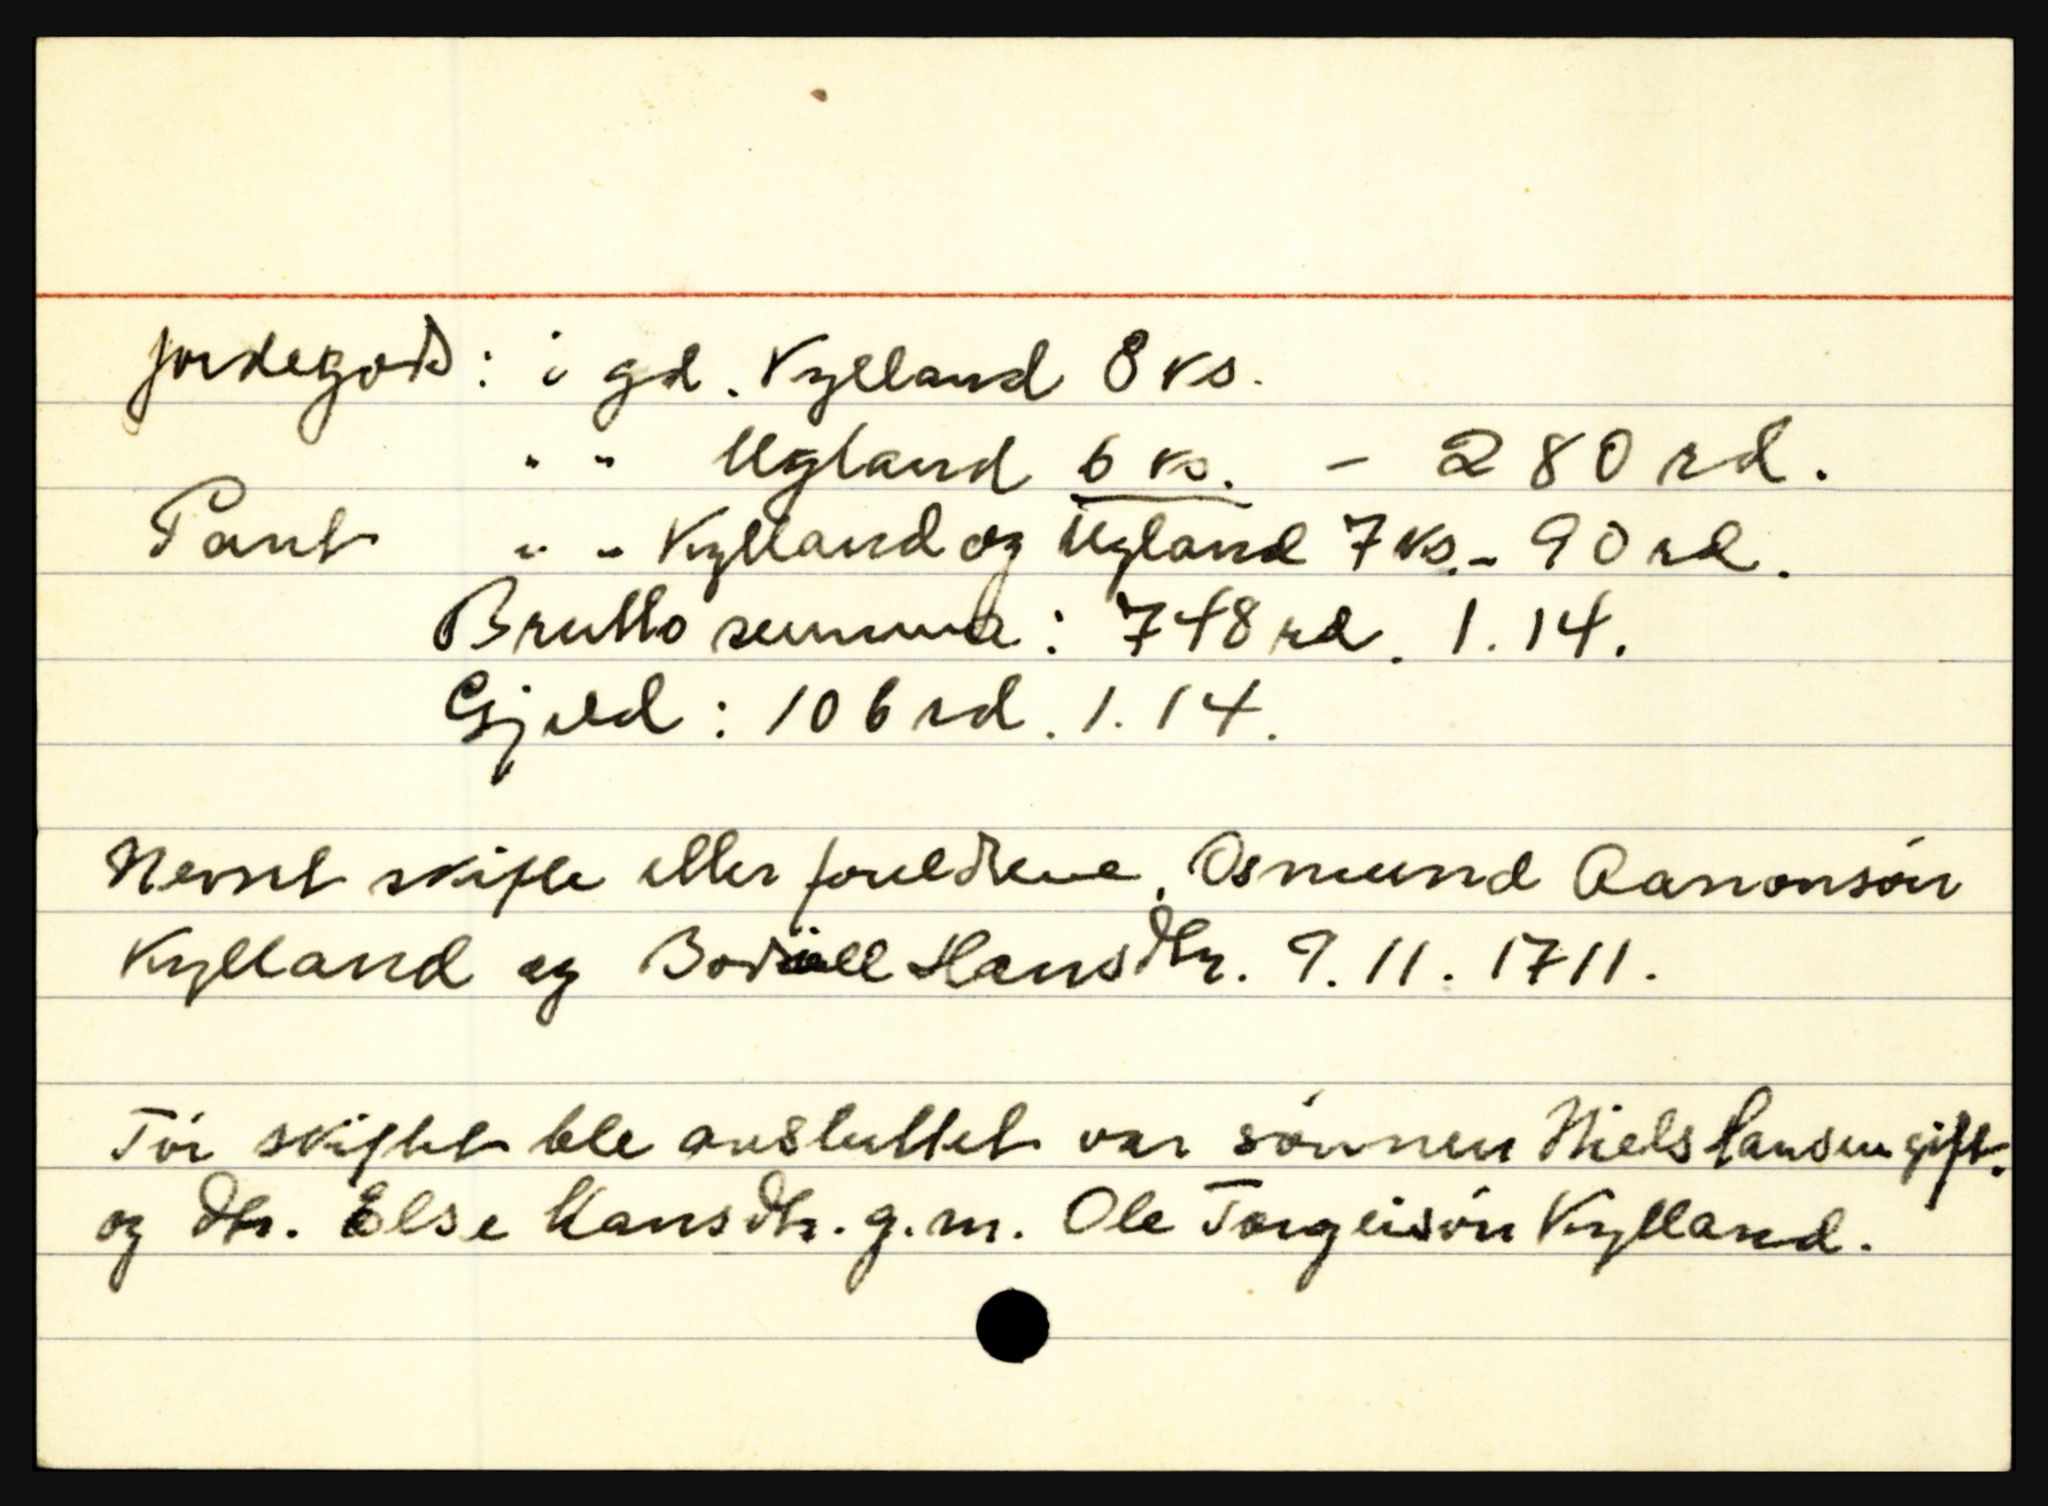 Jordegods: i gd. Kylland 8 ks.
" " Ugland 6 ks. - 280 rd.
Pant " " Kylland og Ugland 7 ks. - 90 rd.
Brutto summa: 748 rd. 1.14.
Gjeld: 106 rd. 1.14.
Nevnt skifte etter foreldrene, Osmund Aanonsøn
Kylland og Bodill Hansdtr. 9.11.1711.
Før skiftet ble avsluttet var sønnen Niels Hansen gift.
og dtr. Else Hansdtr. g.m. Ole Torgeisøn Kylland.